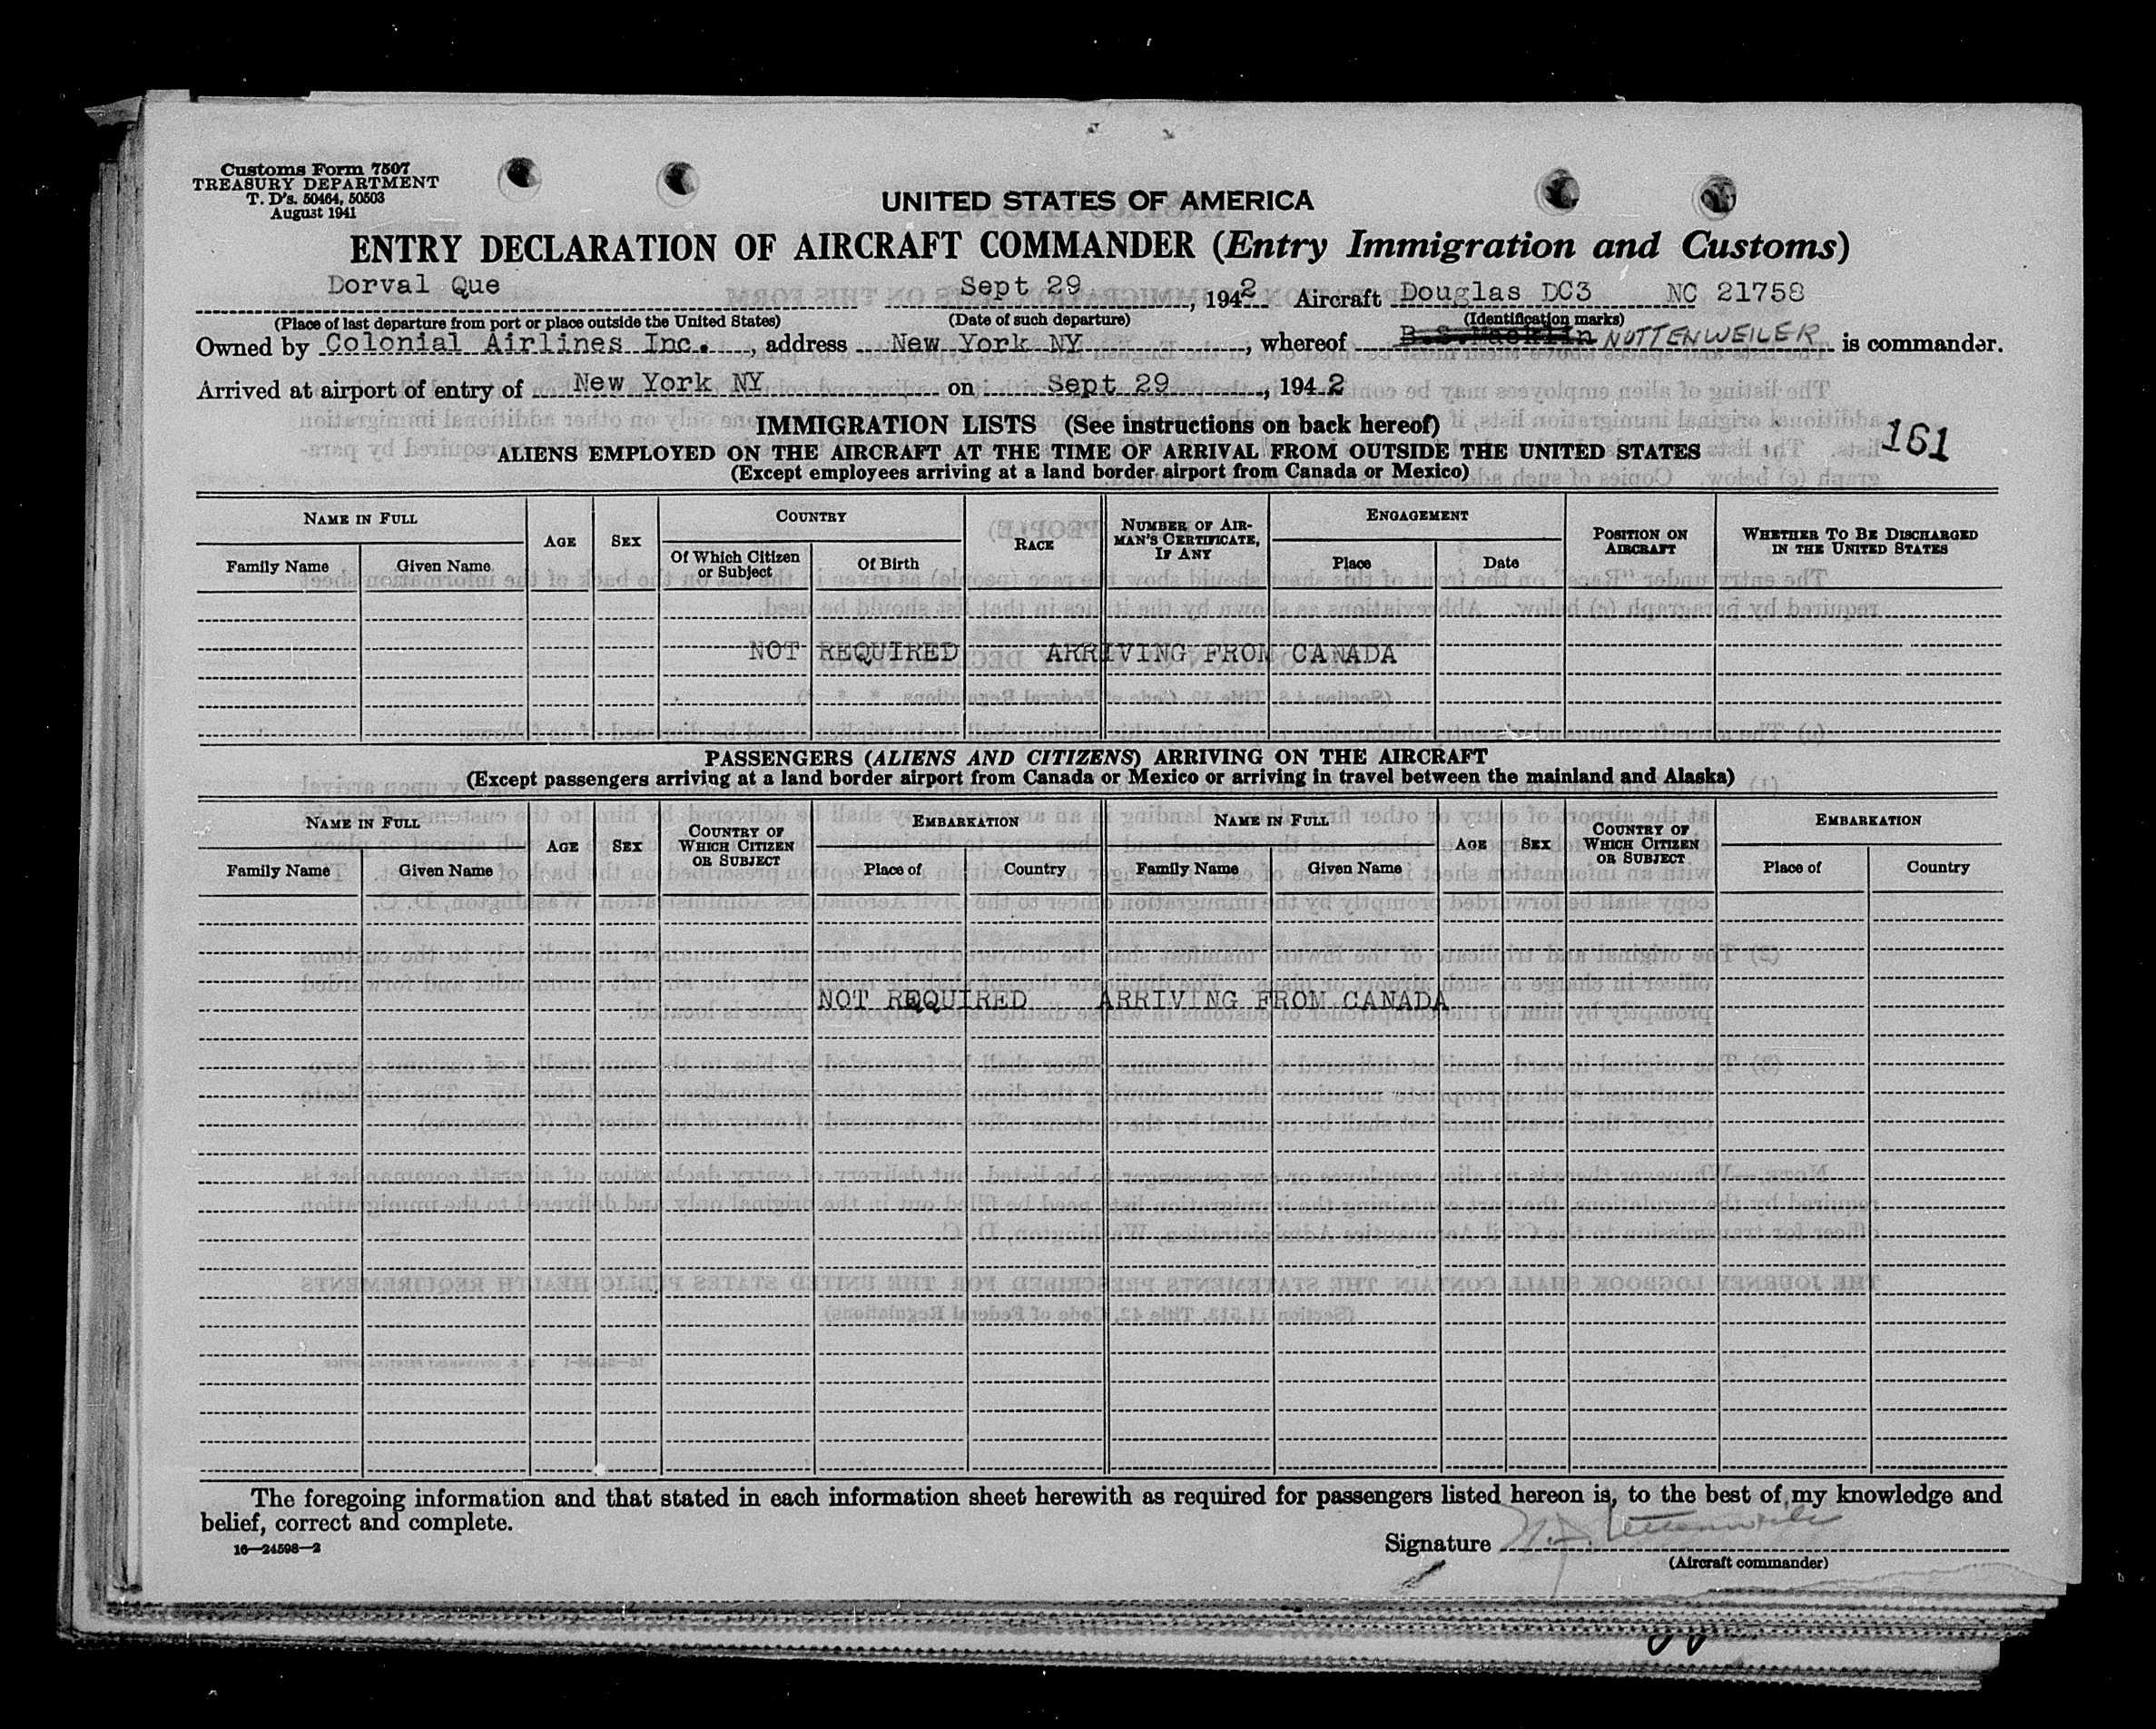 Customs Form 7507
TREASURY DEPARTMENT
T. D's. 50464, 50503
August 1941
UNITED STATES OF AMERICA
ENTRY DECLARATION OF AIRCRAFT COMMANDER (Entry Immigration and Customs)
Dorval Que Sept 29, 1942 Aircraft Douglas DC3 NC 21758
(Place of last departure from port or place outside the United States) (Date of such departure) (Identification marks)
Owned by Colonial Airlines Inc., address New York NY, whereof B.S.Macklin NOTTENWEILER is commander.
Arrived at airport of entry of New York NY on Sept 29, 1942
IMMIGRATION LISTS (See instructions on back hereof)
161
ALIENS EMPLOYED ON THE AIRCRAFT AT THE TIME OF ARRIVAL FROM OUTSIDE THE UNITED STATES
(Except employees arriving at a land border airport from Canada or Mexico)
NAME IN FULL AGE SEX COUNTRY RACE NUMBER OF AIRMAN'S CERTIFICATE, IF ANY ENGAGEMENT POSITION ON AIRCRAFT WHETHER TO BE DISCHARGED IN THE UNITED STATES
Family Name Given Name Of Which Citizen or Subject Of Birth Place Date
NOT REQUIRED ARRIVING FROM CANADA
PASSENGERS (ALIENS AND CITIZENS) ARRIVING ON THE AIRCRAFT
(Except passengers arriving at a land border airport from Canada or Mexico or arriving in travel between the mainland and Alaska)
NAME IN FULL AGE SEX COUNTRY OF WHICH CITIZEN OR SUBJECT EMBARKATION NAME IN FULL AGE SEX COUNTRY OF WHICH CITIZEN OR SUBJECT EMBARKATION
Family Name Given Name Place of Country Family Name Given Name Place of Country
NOT REQUIRED ARRIVING FROM CANADA
The foregoing information and that stated in each information sheet herewith as required for passengers listed hereon is, to the best of my knowledge and
belief, correct and complete.
16—24598—2
Signature
(Aircraft commander)